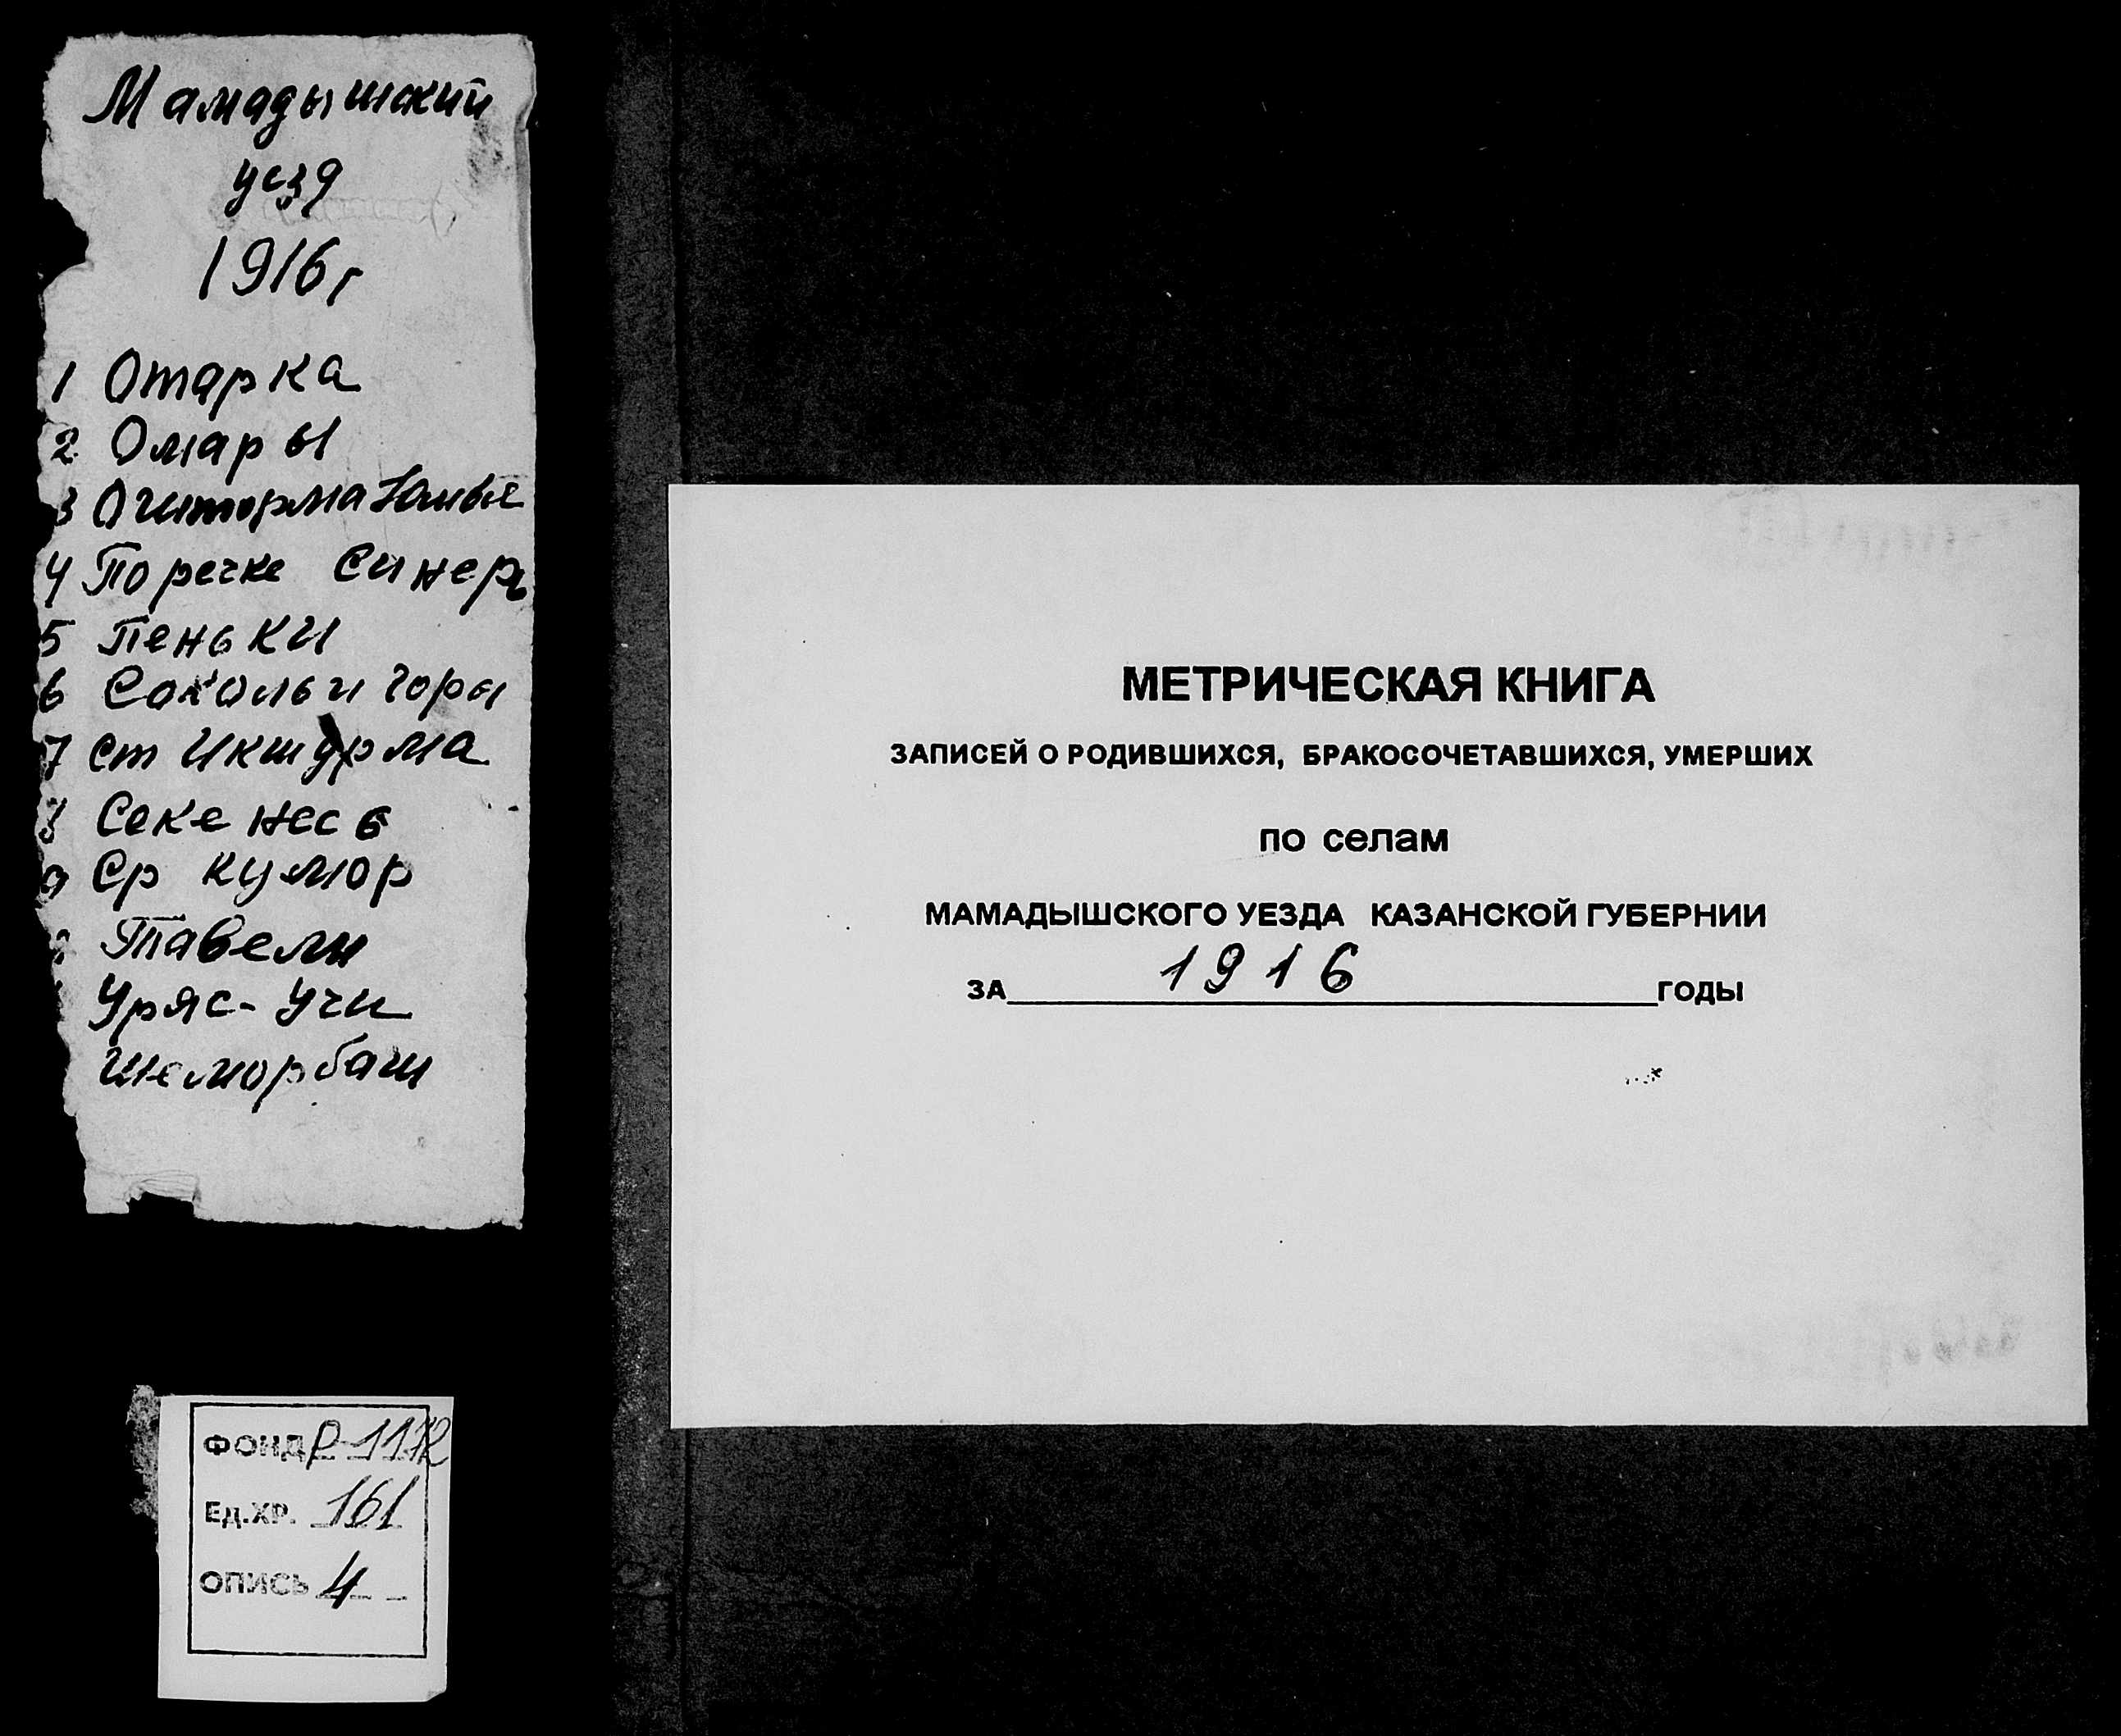 Мамадышский
уезд
1916 г
1 Отарка
2 Омары
3 Ошторма Юмья
4 Поречке Синерь
5 Пеньки
6 Сокольи горы
7 ст Икшурма
Секенесь
9 Ср Кумор
Тавели
Уряс-Учи
Шеморбаш
ФОНД Р-1172
Ед.ХР. 161
ОПИСЬ 4
МЕТРИЧЕСКАЯ КНИГА
ЗАПИСЕЙ О РОДИВШИХСЯ, БРАКОСОЧЕТАВШИХСЯ, УМЕРШИХ
по селам
МАМАДЫШСКОГО УЕЗДА КАЗАНСКОЙ ГУБЕРНИИ
ЗА 1916 ГОДЫ